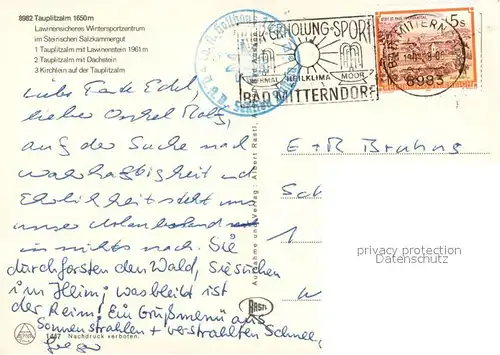 8982 Tauplitzalm 1650m
Lawinensicheres Wintersportzentrum
im Steirischen Salzkammergut
1 Tauplitzalm mit Lawinenstein 1961 m
2 Tauplitzalm mit Dachstein
3 Kirchlein auf der Tauplitzalm
ERHOLUNG·SPORT
THERMAL HEILKLIMA MOOR
BAD MITTERNDORF
5s
8983
liebe Tante Edel,
lieber Onkel
auf der Suche nach
Wahrhaftigkeit und
Ehrlichkeit steht uns
unser Urlaubsland
in nichts nach. Sie
durchforsten den Wald, Sie suchen
im Heim; was bleibt ist
der Reim! Ein Grußmenü aus
Sonnenstrahlen + verstrahlten Schnee,
E + R Bruhns
1
privacy protection
Datenschutz
Aufnahme und Verlag: Albert Rastl,
Rastl
1457 Nachdruck verboten.